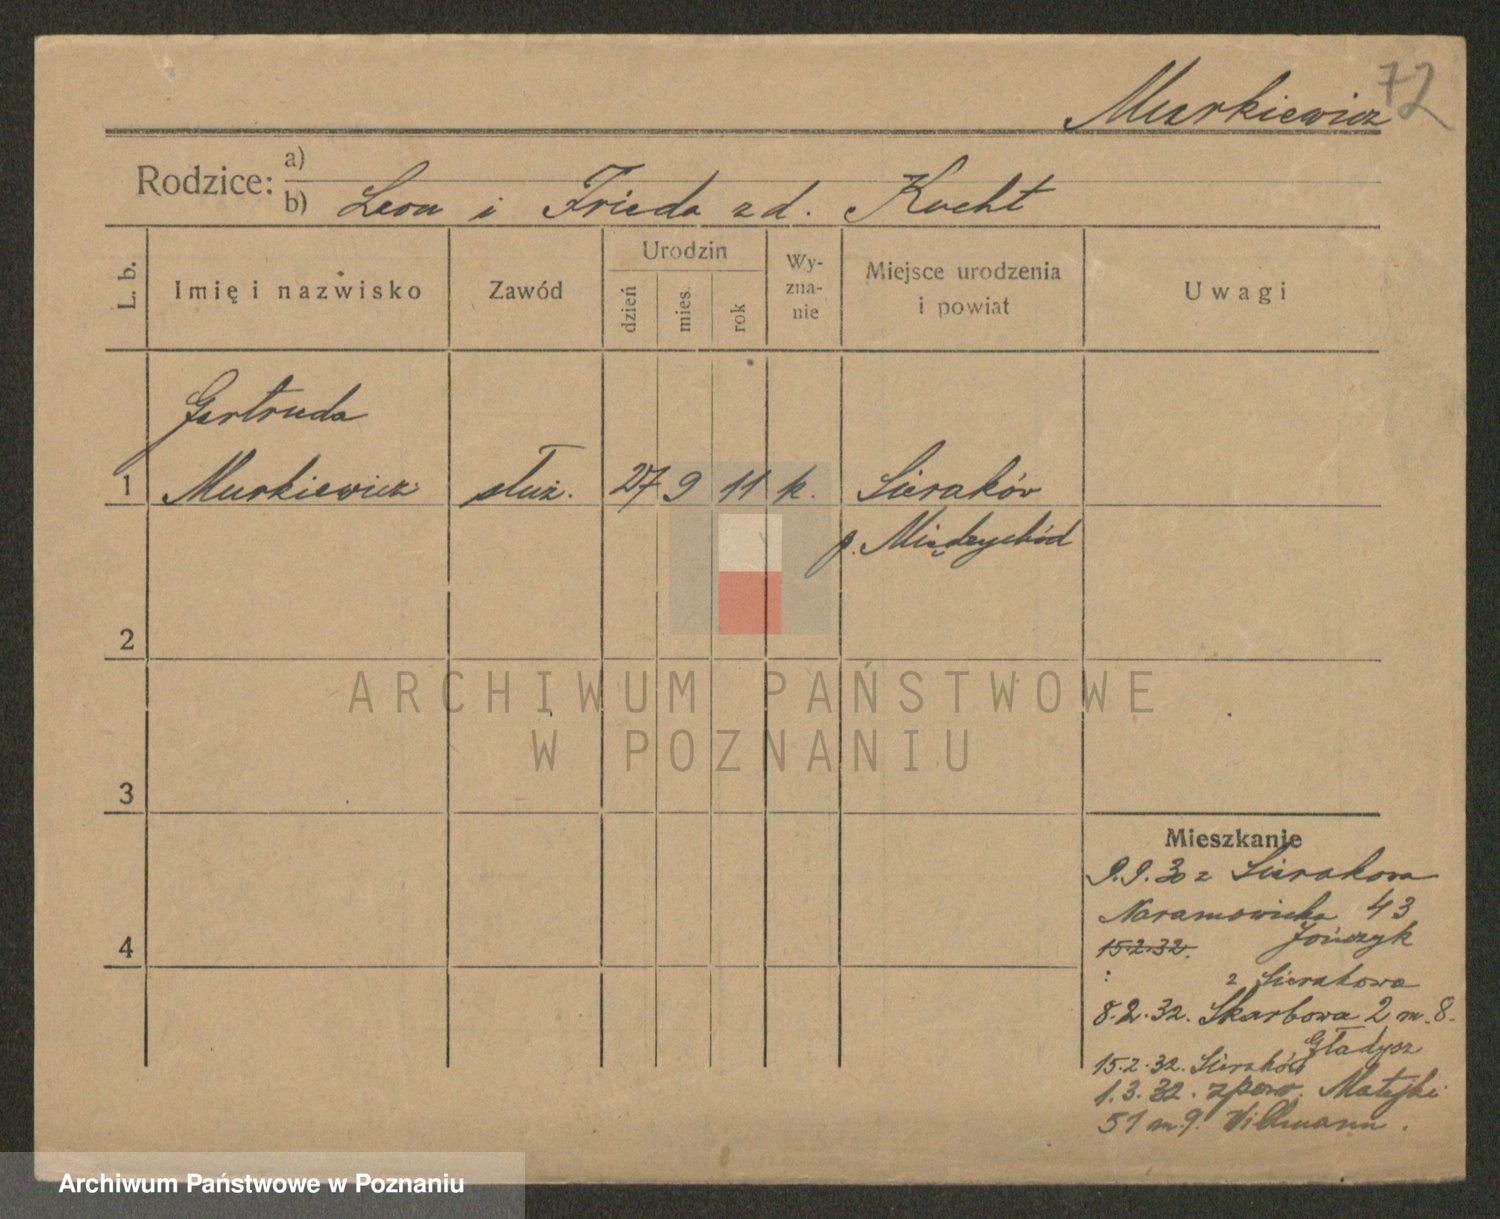 72
Murkiewicz
Rodzice:
a)
b) Leon i Frieda z d. Kucht
L. b.
Imię i nazwisko
Zawód
Urodzin
dzień
mies.
rok
Wy-
zna-
nie
Miejsce urodzenia
i powiat
Uwagi
Gertruda
1 Murkiewicz służ. 27 9 11 k. Sieraków
p. Międzychód
2
3
4
Mieszkanie
9.9.30 z Sierakowa
Naramowicka 43
Jończyk
15.2.32.
z Sierakowa
8.2.32. Skarbowa 2 m. 8.
Gładysz
15.2.32. Sieraków
1.3.32. zpow. Matejki
51 m 9. Villmann.
ARCHIWUM PAŃSTWOWE
W POZNANIU
Archiwum Państwowe w Poznaniu